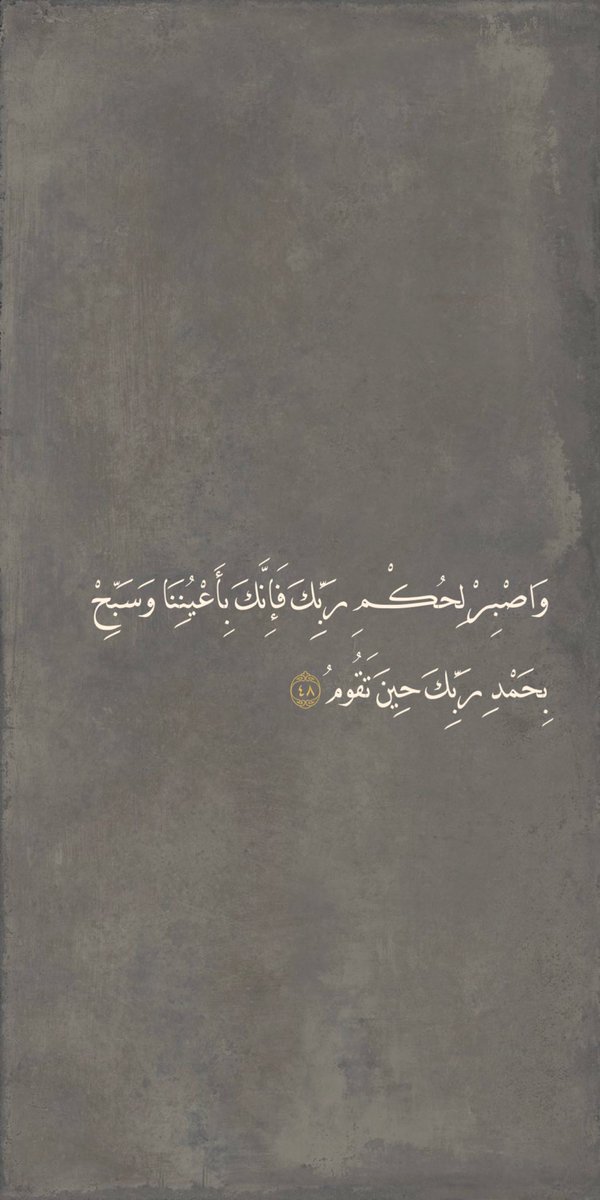 وَاصْبِرْ لِحُكْمِ رَبِّكَ فَإِنَّكَ بِأَعْيُنِنَا وَسَبِّحْ
بِحَمْدِ رَبِّكَ حِينَ تَقُومُ ٤٨